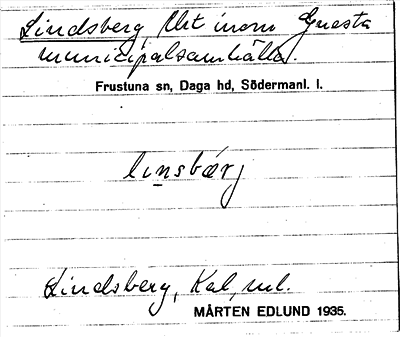 Lindsberg, lht inom Gnesta
municipalsamhälle.
Frustuna sn, Daga hd, Södermanl. l.
li̲nsbärj
Lindsberg, Kal, ml.
MÅRTEN EDLUND 1935.